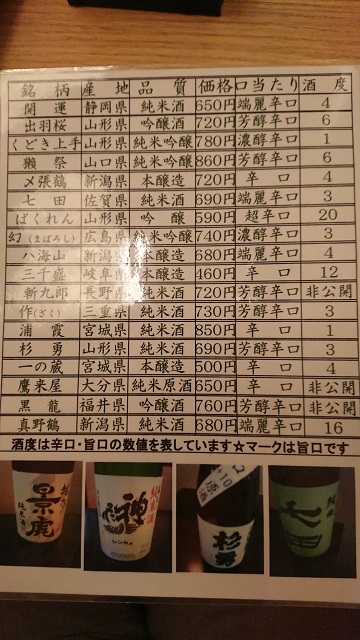 銘柄 産地 品質 価格 口当たり 酒度
開運 静岡県 純米酒 650円 端麗辛口 4
出羽桜 山形県 吟醸酒 720円 芳醇辛口 6
くどき上手 山形県 純米吟醸 780円 濃醇辛口 1
獺祭 山口県 純米吟醸 860円 芳醇辛口 6
〆張鶴 新潟県 本醸造 720円 辛口 4
七田 佐賀県 純米酒 690円 端麗辛口 3
ばくれん 山形県 吟醸 590円 超辛口 20
幻(まぼろし) 広島県 純米吟醸 740円 濃醇辛口 3
八海山 新潟 本醸造 680円 端麗辛口 4
三千盛 岐阜県 本醸造 460円 辛口 12
斬九郎 長野県 純米酒 720円 芳醇辛口 非公開
作(ざく) 三重県 純米酒 730円 芳醇辛口 3
浦霞 宮城県 純米酒 850円 辛口 1
杉勇 山形県 純米酒 690円 芳醇辛口 3
一の蔵 宮城県 本醸造 500円 辛口 4
鷹来屋 大分県 純米原酒 650円 辛口 非公開
黒龍 福井県 吟醸酒 760円 芳醇辛口 非公開
真野鶴 新潟県 純米酒 680円 端麗辛口 16
酒度は辛口・旨口の数値を表しています☆マークは旨口です
景虎
純米酒
杉勇
原酒
七田